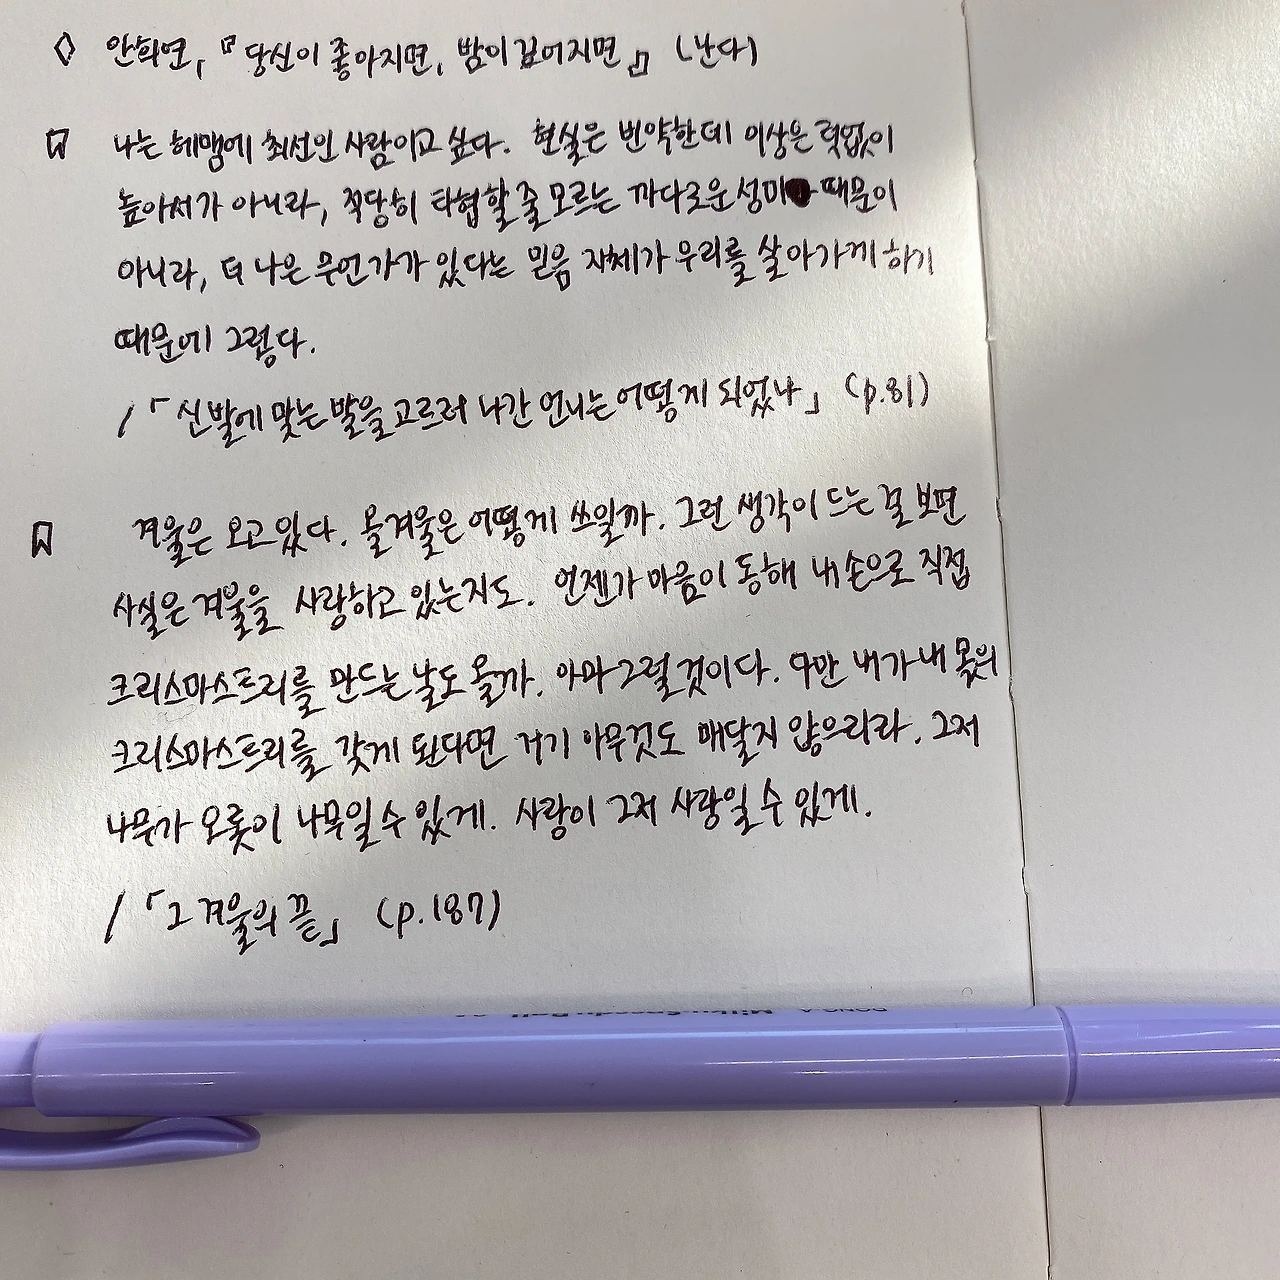 안희연, 『당신이 좋아지면, 밤이 깊어지면』 (난다)
나는 헤맴에 최선인 사람이고 싶다. 현실은 빈약한데 이상은 턱없이
높아서가 아니라, 적당히 타협할 줄 모르는 까다로운 성미 때문이
아니라, 더 나은 무언가가 있다는 믿음 자체가 우리를 살아가게 하기
때문에 그렇다.
/「신발에 맞는 발을 고르러 나간 언니는 어떻게 되었나」 (p.81)
겨울은 오고 있다. 올겨울은 어떻게 쓰일까. 그런 생각이 드는 걸 보면
사실은 겨울을 사랑하고 있는지도. 언젠가 마음이 동해 내 손으로 직접
크리스마스트리를 만드는 날도 올까. 아마 그럴 것이다. 다만 내가 내 몫의
크리스마스트리를 갖게 된다면 거기 아무것도 매달지 않으리라. 그저
나무가 오롯이 나무일 수 있게. 사랑이 그저 사랑일 수 있게.
/「그 겨울의 끝」 (p.187)
DONG-A Milky Speedy Ball